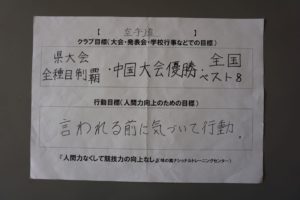 【 空手道 】
クラブ目標(大会・発表会・学校行事などでの目標)
県大会 全国
全種目制覇・中国大会優勝・ベスト8
行動目標(人間力向上のための目標)
言われる前に気づいて行動.
『人間力なくして競技力の向上なし』(味の素ナショナルトレーニングセンター)